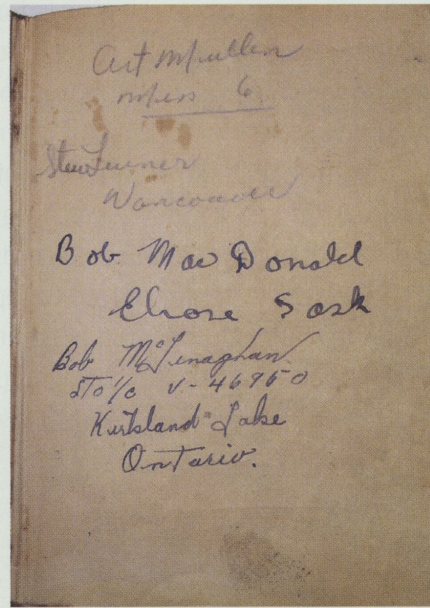 Art McMullen
mess 6
Stew Turner
Vancouver
Bob MacDonald
Elrose Sask
Bob McLenaghan.
STO 1/c V-46950
Kirkland Lake
Ontario.